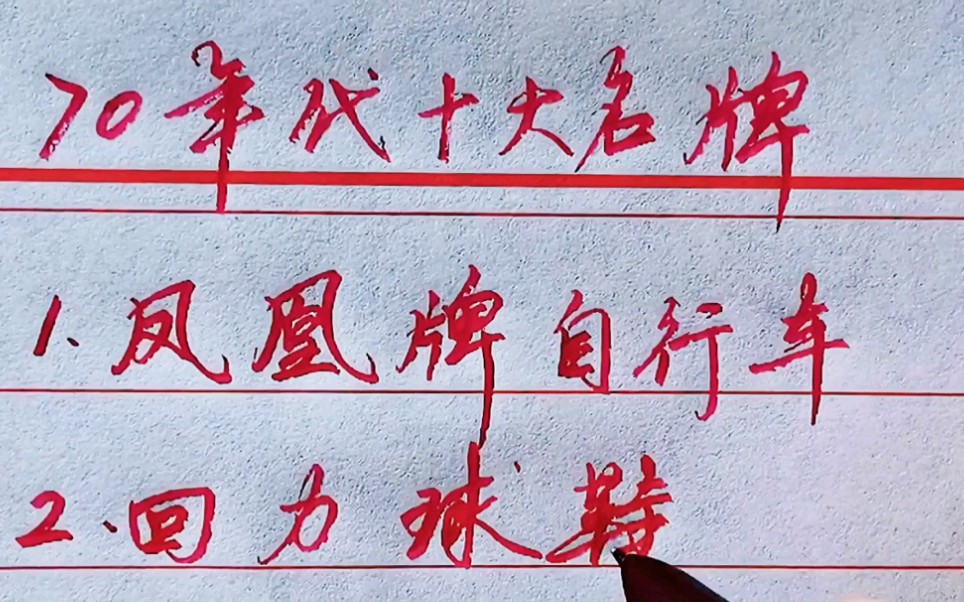 70年代十大名牌
1.凤凰牌自行车
2.回力球鞋